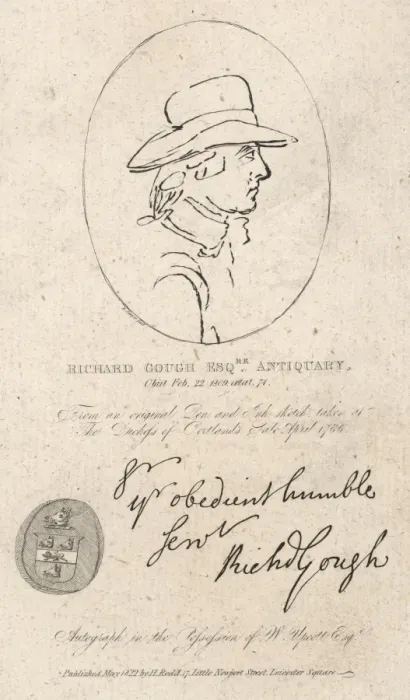 RICHARD GOUGH ESQ.RE ANTIQUARY,
Obiit Feb. 22 1809, ætat. 74.
From an original Pen and Ink sketch, taken at
The Duchess of Portland's Sale April 1786.
Sr
yr obedient humble
Servt
Richd Gough
Autograph in the Possession of W. Upcott Esqr.
Published May 1822 by H. Rodd 17, Little Newport Street, Leicester Square